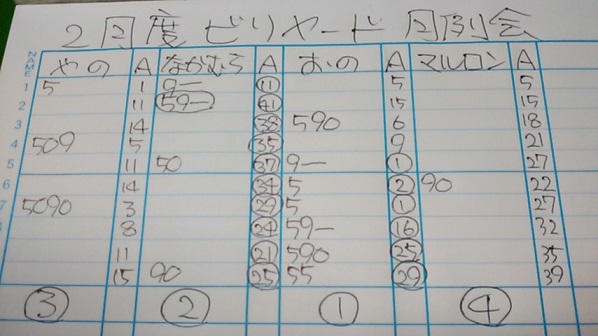 2回度 ビリヤード 同例会
NAME やの A なかむら A おの A マルロン A
1 5 1 9― ⑪ 5 5
2 11 59― ㊶ 15 15
3 14 ㊳ 590 6 18
4 509 5 ㉟ 9 21
5 11 50 ㊲ 9― ① 27
6 14 ㉞ 5 ② 90 22
7 5090 3 ㊴ 5 ① 27
8 8 ㉔ 59― ⑯ 32
11 ㉑ 590 ㉕ 35
15 90 ㉕ 55 ㉙ 39
③ ② ① ④